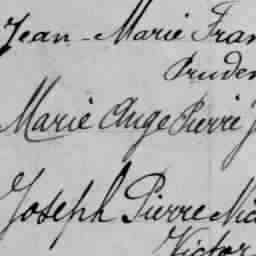 Jean-Marie Fran
Pruden
Marie Ange Pierre J
Joseph Pierre Mic
Victor